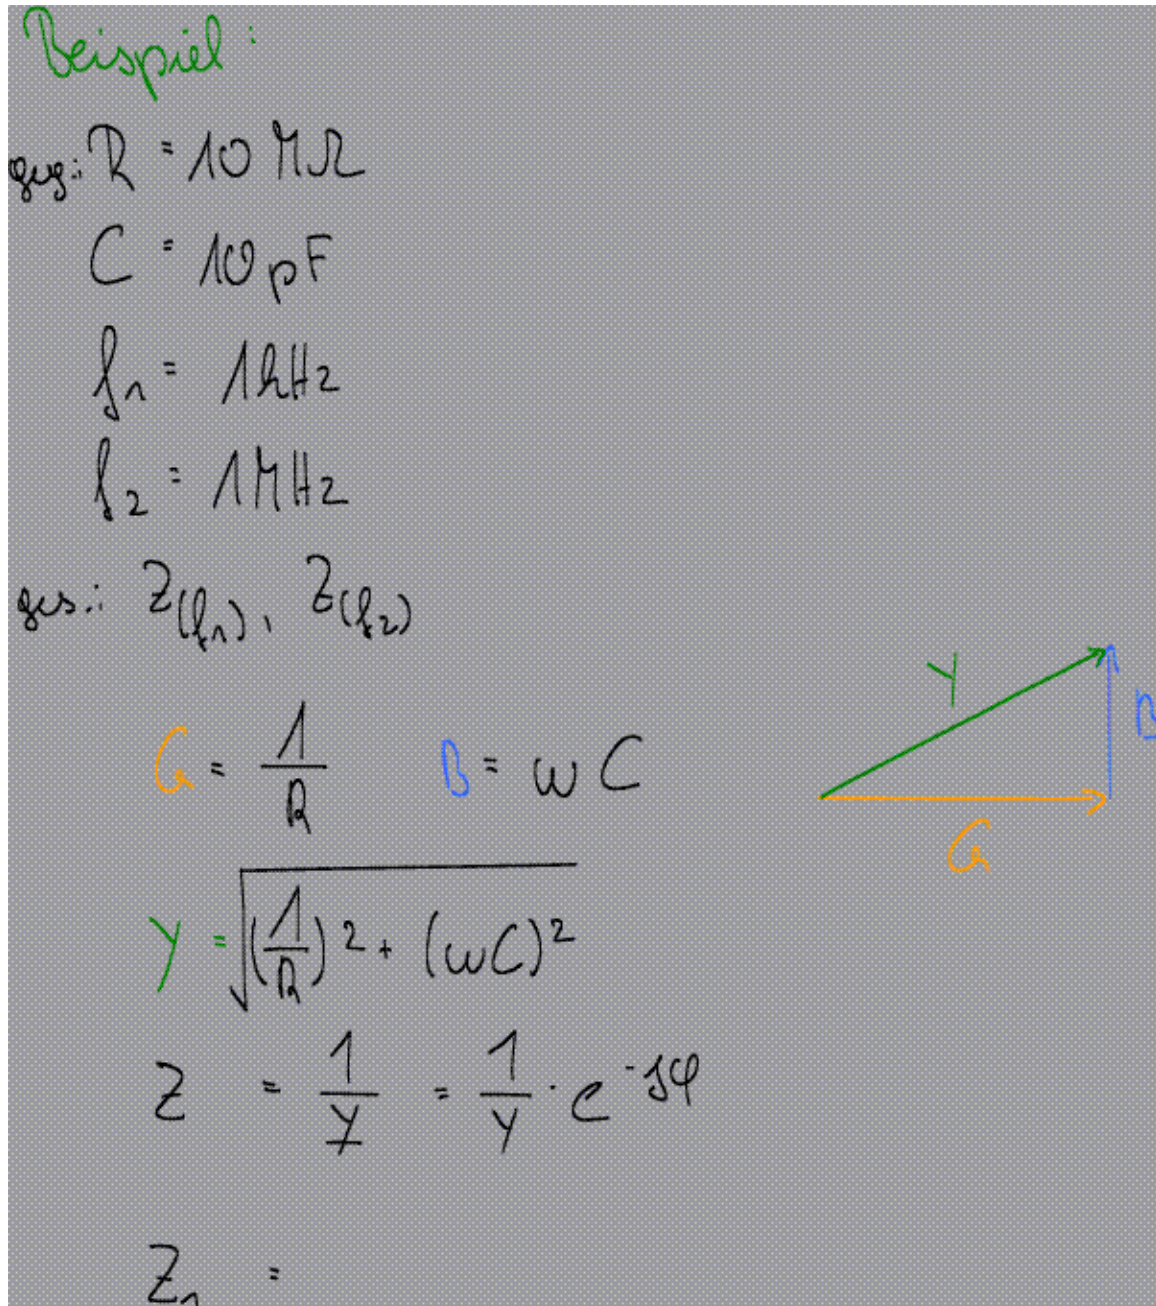 Beispiel:
geg.: R = 10 MΩ
C = 10 pF
f₁ = 1kHz
f₂ = 1MHz
ges.: Z(f₁), Z(f₂)
Y
B
G = 1/R B = ωC
G
Y = √((1/R)² + (ωC)²)
Z = 1/Y = 1/Y · e^-jφ
Z₁ =